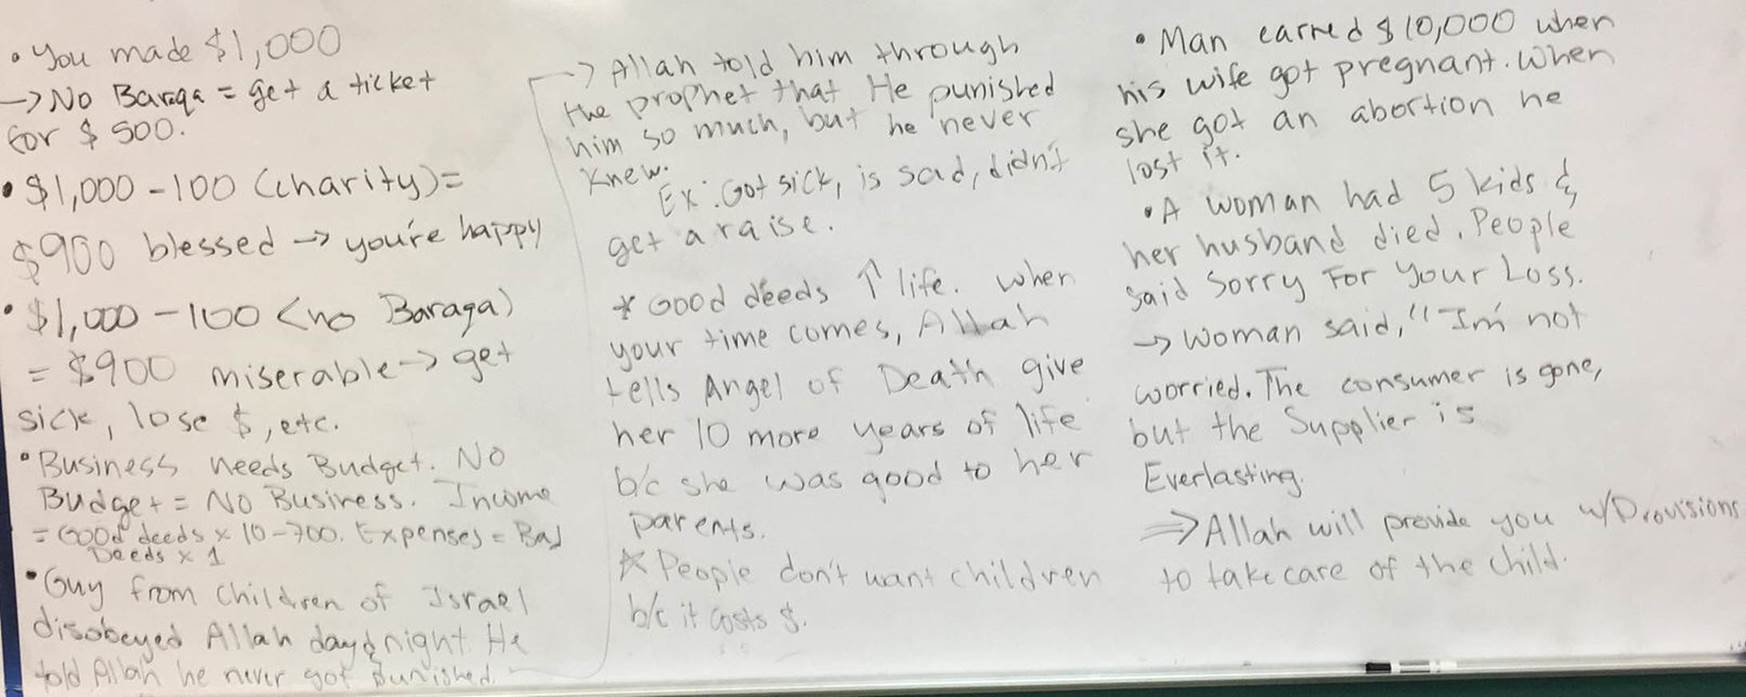 • You made $1,000
→ No Barqa = get a ticket
for $500.
• $1,000 - 100 (charity) =
$900 blessed → you're happy
• $1,000 - 100 (no Baraqa)
= $900 miserable → get
sick, lose $, etc.
• Business needs Budget. No
Budget = No Business. Income
= Good deeds x 10-700. Expenses = Bad
Deeds x 1
• Guy from Children of Israel
disobeyed Allah day & night. He
told Allah he never got punished.
→ Allah told him through
the prophet that He punished
him so much, but he never
knew.
Ex: Got sick, is sad, didn't
get a raise.
* Good deeds ↑ life. When
your time comes, Allah
tells Angel of Death give
her 10 more years of life
b/c she was good to her
parents.
* People don't want children
b/c it costs $.
• Man earned $10,000 when
his wife got pregnant. When
she got an abortion he
lost it.
• A woman had 5 kids &
her husband died. People
said Sorry For Your Loss.
→ Woman said, "I'm not
worried. The consumer is gone,
but the Supplier is
Everlasting.
⇒ Allah will provide you w/Provisions
to take care of the child.